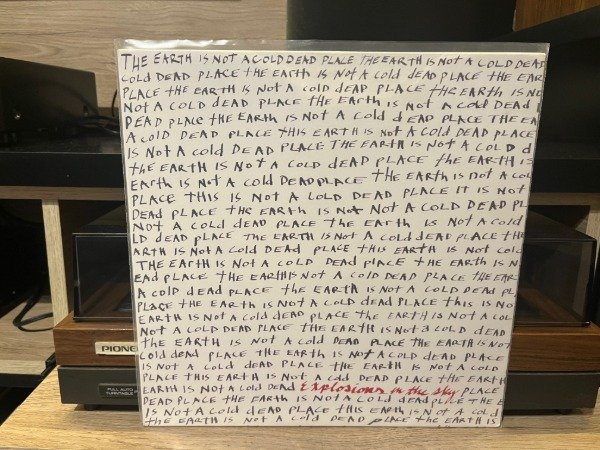 THE EARTH IS NOT A COLD DEAD PLACE THE EARTH IS NOT A COLD DEAD
COLD DEAD PLACE THE EARTH IS NOT A COLD DEAD PLACE THE EAR
PLACE THE EARTH IS NOT A COLD DEAD PLACE THE EARTH IS N
NOT A COLD DEAD PLACE THE EARTH IS NOT A COLD DEAD
DEAD PLACE THE EARTH IS NOT A COLD DEAD PLACE THE EA
A COLD DEAD PLACE THIS EARTH IS NOT A COLD DEAD PLACE
IS NOT A COLD DEAD PLACE THE EARTH IS NOT A COLD D
THE EARTH IS NOT A COLD DEAD PLACE THE EARTH IS
EARTH IS NOT A COLD DEAD PLACE THE EARTH IS NOT A COL
PLACE THIS IS NOT A COLD DEAD PLACE IT IS NOT
DEAD PLACE THE EARTH IS NOT NOT A COLD DEAD PL
NOT A COLD DEAD PLACE THE EARTH IS NOT A COLD
LD DEAD PLACE THE EARTH IS NOT A COLD DEAD PLACE THE
ARTH IS NOT A COLD DEAD PLACE THIS EARTH IS NOT COL
THE EARTH IS NOT A COLD DEAD PLACE THE EARTH IS N
EAD PLACE THE EARTH IS NOT A COLD DEAD PLACE THE EAR
A COLD DEAD PLACE THE EARTH IS NOT A COLD DEAD PLA
PLACE THE EARTH IS NOT A COLD DEAD PLACE THIS IS NO
EARTH IS NOT A COLD DEAD PLACE THE EARTH IS NOT A COL
NOT A COLD DEAD PLACE THE EARTH IS NOT A COLD DEAD
THE EARTH IS NOT A COLD DEAD PLACE THE EARTH IS NOT
COLD DEAD PLACE THE EARTH IS NOT A COLD DEAD PLACE
IS NOT A COLD DEAD PLACE THE EARTH IS NOT A COLD
PLACE THIS EARTH IS NOT A COLD DEAD PLACE THE EARTH
EARTH IS NOT A COLD DEAD Explosions in the Sky PLACE
DEAD PLACE THE EARTH IS NOT A COLD DEAD PLACE THE E
IS NOT A COLD DEAD PLACE THIS EARTH IS NOT A COLD
THE EARTH IS NOT A COLD DEAD PLACE THE EARTH IS
PIONE
FULL AUTO
TURNTABLE